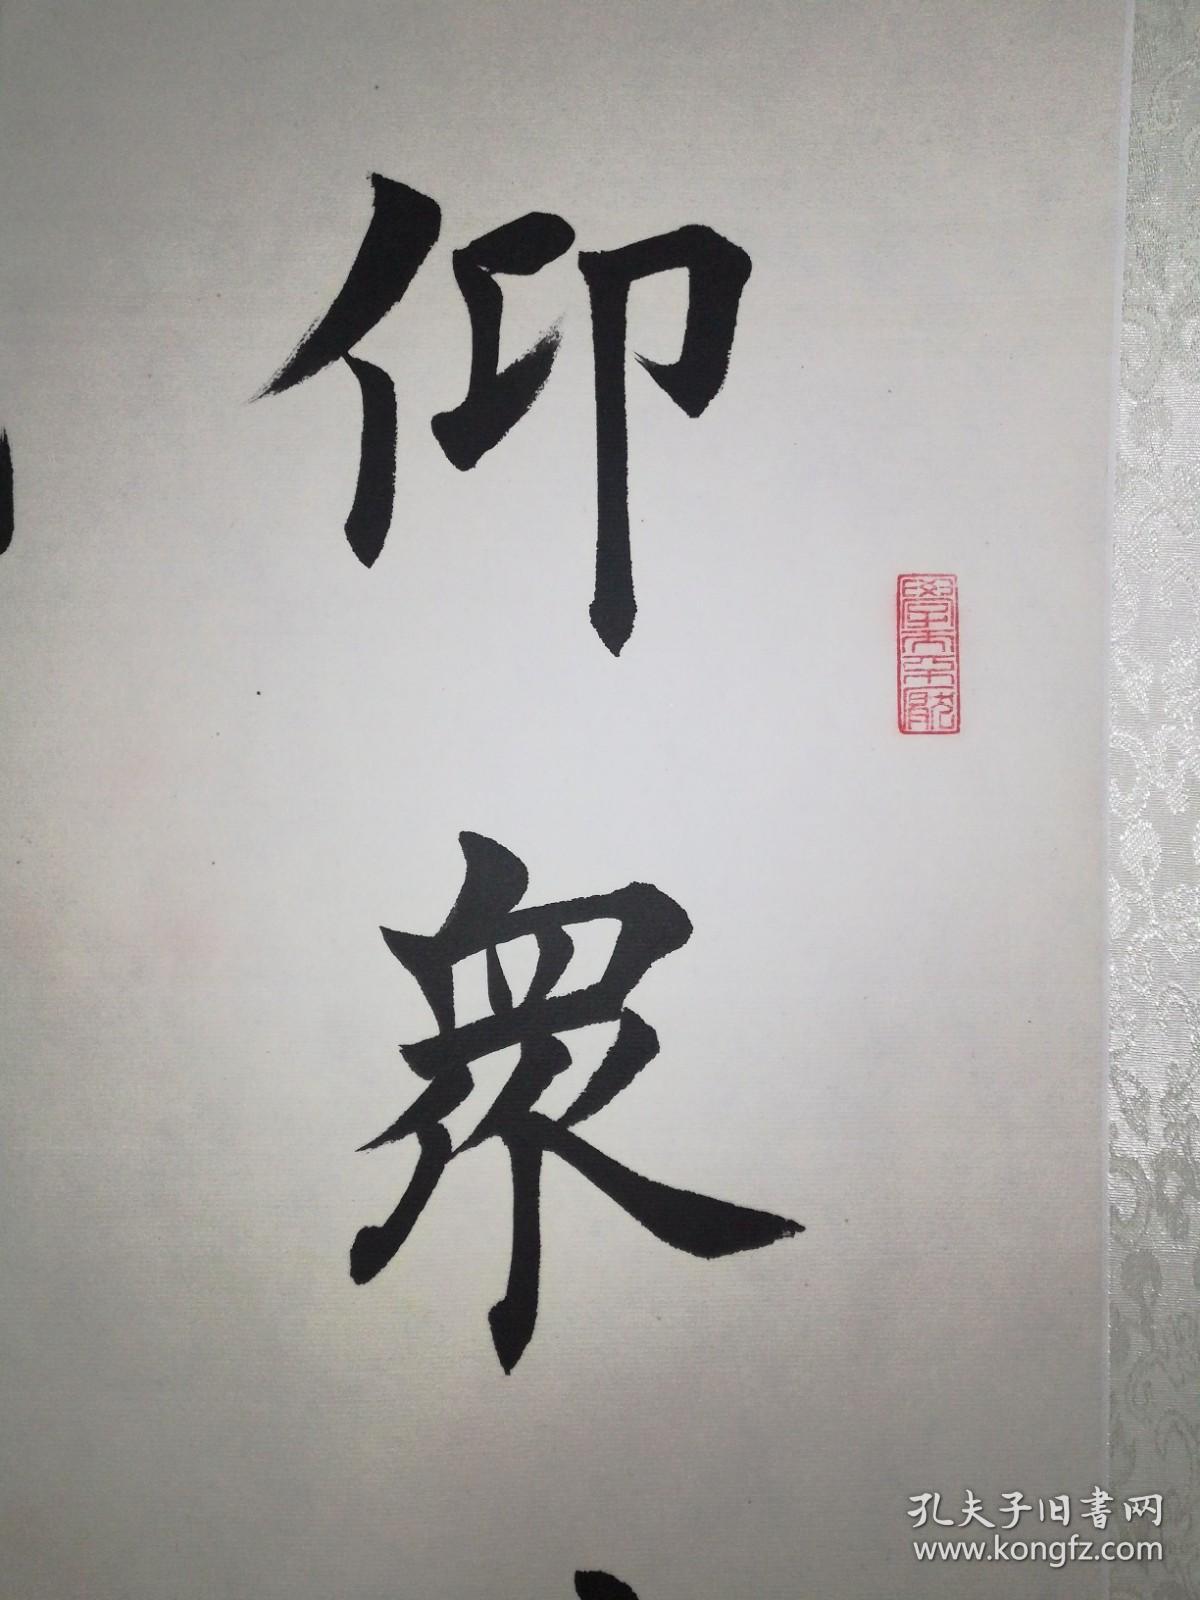 仰衆
孔夫子旧書网
www.kongfz.com